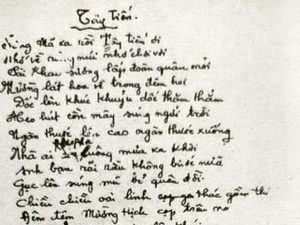 Tây Tiến.
Sông Mã xa rồi Tây tiến ơi
Nhớ về rừng núi nhớ chơi vơi
Sài Khao sương lấp đoàn quân mỏi
Mường lát hoa về trong đêm hơi
Dốc lên khúc khuỷu dốc thăm thẳm
Heo hút cồn mây súng ngửi trời
Ngàn thước lên cao ngàn thước xuống
Nhà ai Luông mưa xa khơi
Anh bạn rãi rầu không bước nữa
Gục lên súng mũ bỏ quên đời
Chiều chiều oai linh thác gầm
Đêm đêm Mường Hịch cọp trêu